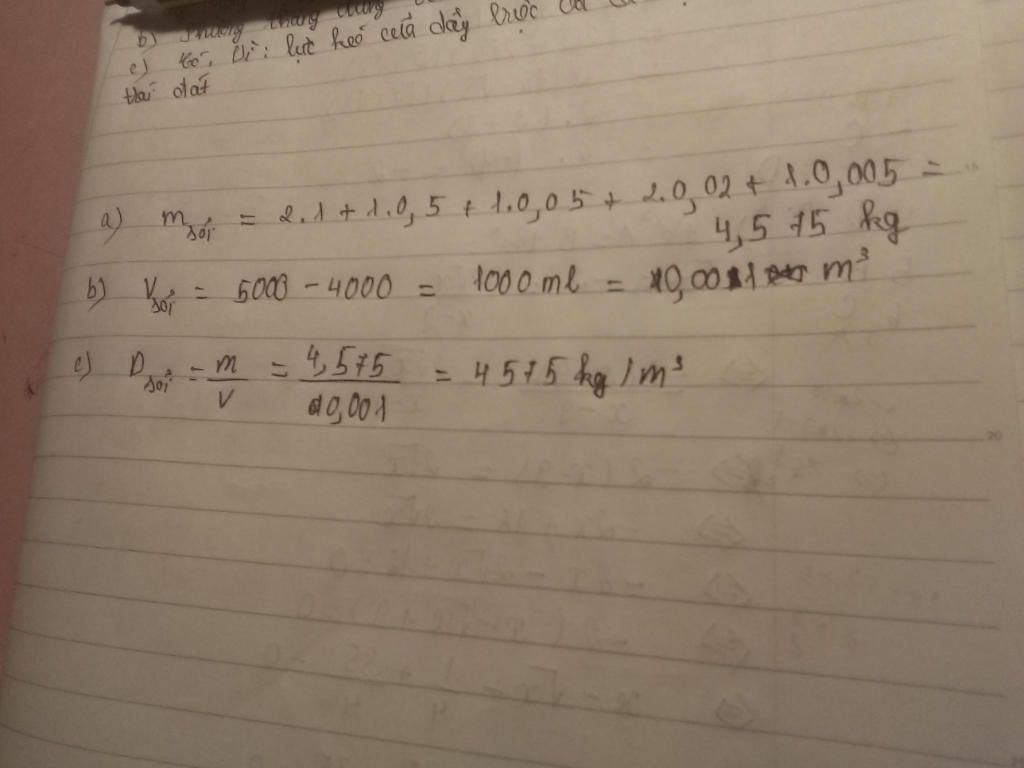 b)
c) Có. Vì: lực kéo của dây
trái đất
a) m sỏi = 2.1 + 1.0,5 + 1.0,05 + 1.0,02 + 1.0,005 =
4,575 kg
b) V sỏi = 5000 - 4000 = 1000 ml = 0,001 m³
c) D sỏi = m/V = 4,575/0,001 = 4575 kg/m³
20